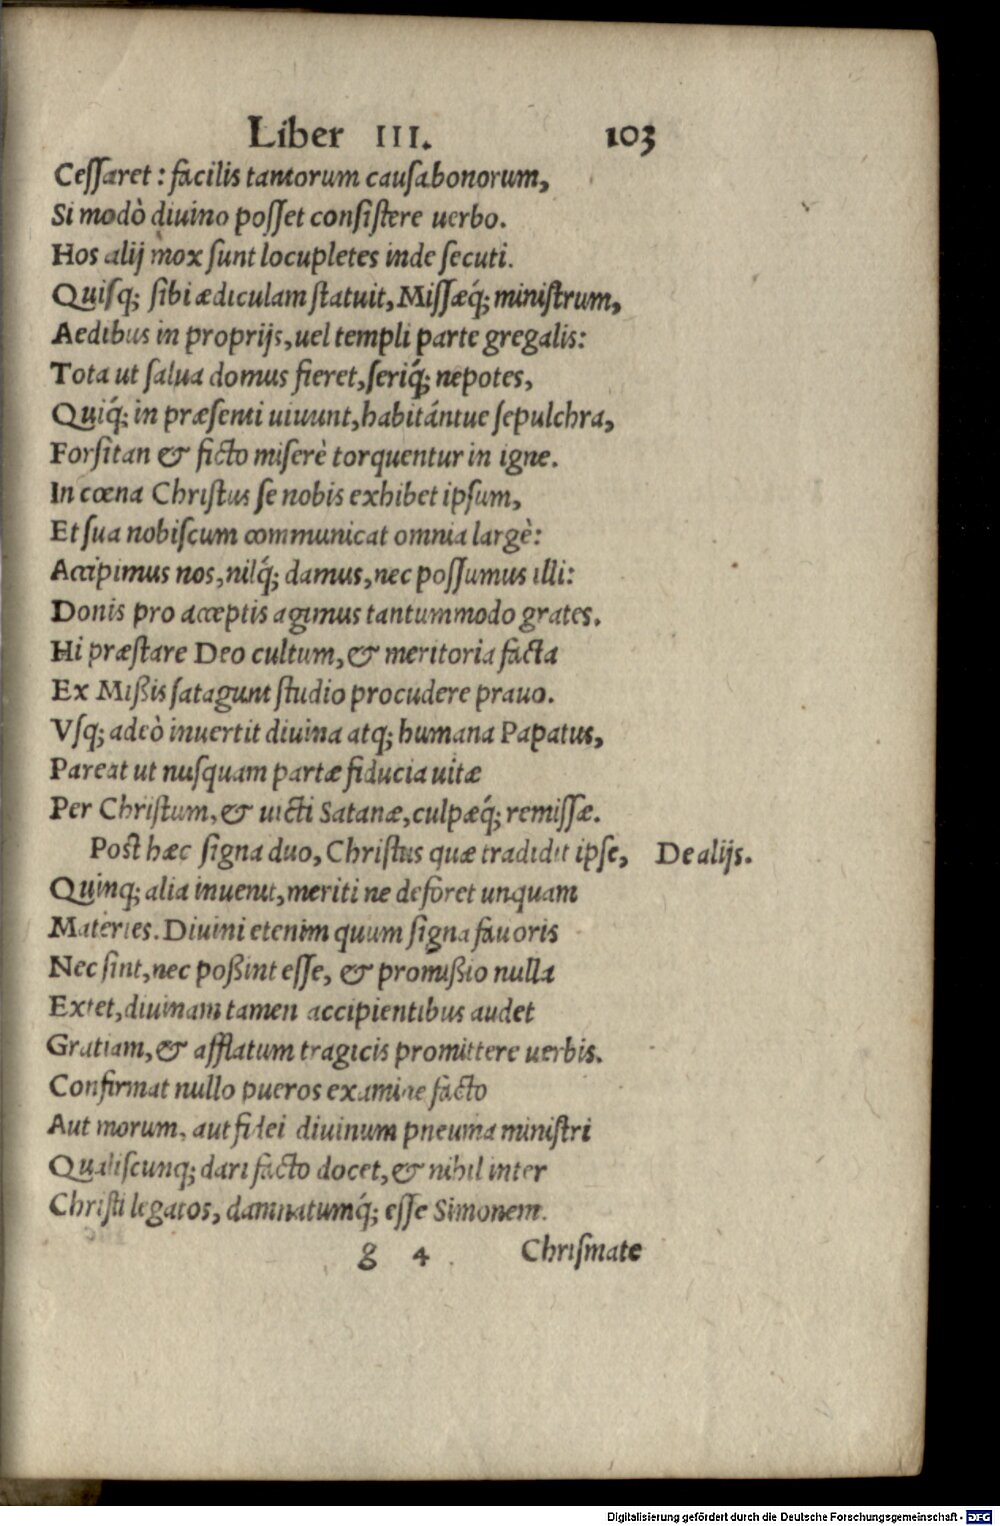 Liber III. 103
Ceſſaret: facilis tantorum cauſa bonorum,
Si modò diuino poſſet conſiſtere uerbo.
Hos alij mox ſunt locupletes inde ſecuti.
Quiſq; ſibi ædiculam ſtatuit, Miſſæq́; miniſtrum,
Aedibus in proprijs, uel templi parte gregalis:
Tota ut ſalua domus fieret, ſeriq́; nepotes,
Quiq́; in præſenti uiuunt, habitántue ſepulchra,
Forſitan & ficto miſerè torquentur in igne.
In cœna Chriſtus ſe nobis exhibet ipſum,
Et ſua nobiſcum communicat omnia largè:
Accipimus nos, nilq́; damus, nec poſſumus illi:
Donis pro acceptis agimus tantummodo grates.
Hi præſtare Deo cultum, & meritoria facta
Ex Mißis ſatagunt ſtudio procudere prauo.
Vſq; adeò inuertit diuina atq; humana Papatus,
Pareat ut nuſquam partæ fiducia uitæ
Per Chriſtum, & uicti Satanæ, culpæq́; remiſſæ.
Poſt hæc ſigna duo, Chriſtus quæ tradidit ipſe, De alijs.
Quinq; alia inuenit, meriti ne deforet unquam
Materies. Diuini etenim quum ſigna fauoris
Nec ſint, nec poßint eſſe, & promißio nulla
Extet, diuinam tamen accipientibus audet
Gratiam, & afflatum tragicis promittere uerbis.
Confirmat nullo pueros examine facto
Aut morum, aut fidei diuinum pneuma miniſtri
Qualiſcunq; dari facto docet, & nihil inter
Chriſti legatos, damnatumq́; eſſe Simonem.
g 4 Chriſmate
Digitalisierung gefördert durch die Deutsche Forschungsgemeinschaft - DFG